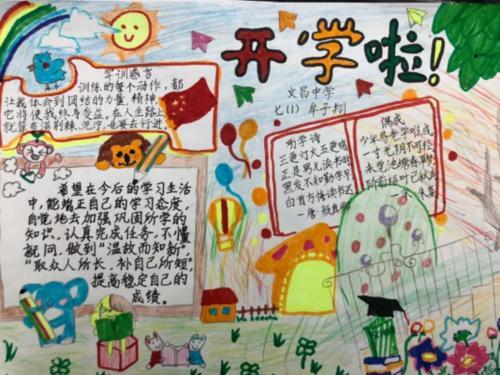 开学啦!
文昌中学
七(1) 牟子翔
军训感言
训练的每个动作,都
让我体会到团结的力量,精神,
它将使我终身受益。在人生路上
就算去沼荆棘泥泞,也要去行进。
劝学诗
三更灯火五更鸡
正是男儿读书时
黑发不知勤学早
白首方悔读书迟
—唐·颜真卿
偶成
少年易老学难成
一寸光阴不可轻
未觉池塘春草梦
阶前梧叶已秋声
—宋·朱熹
希望在今后的学习生活
中,能端正自己的学习态度,
自觉地去加强巩固所学的
知识,认真完成任务,不懂
就问,做到“温故而知新”
“取众人所长,补自己所短”
提高稳定自己的
成绩。